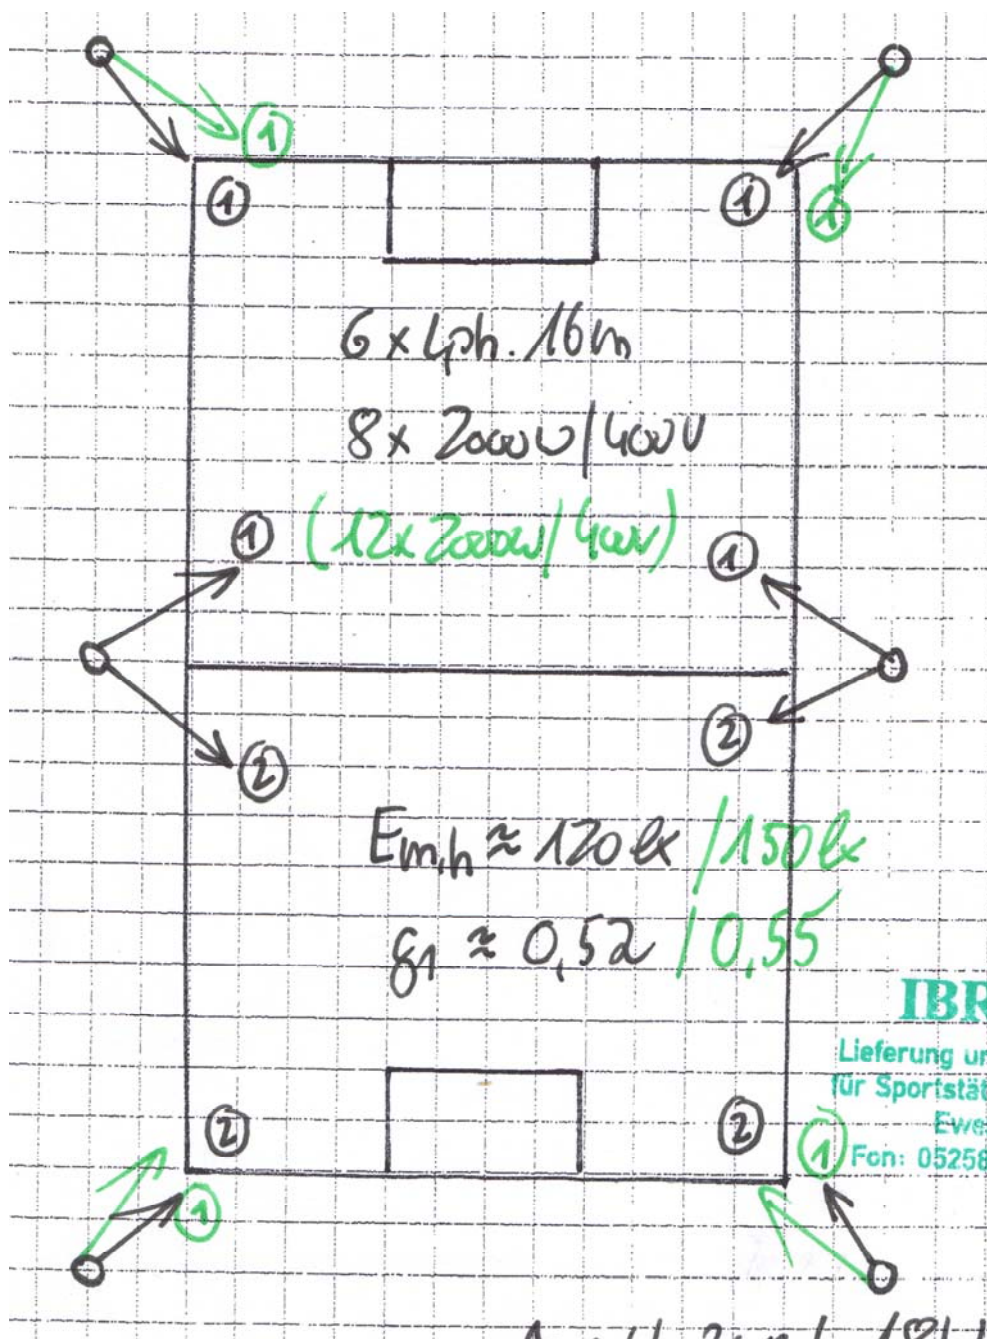 1
1 1 1
6 x Lph. 16m
8 x 2000W/400V
(12x 2000W/400V)
1 1
2
2
Em,h ≈ 120 lx /150 lx
g1 ≈ 0,52 / 0,55
IBR
Lieferung un
für Sportstät
Ewe
Fon: 05258
2 2
1
1